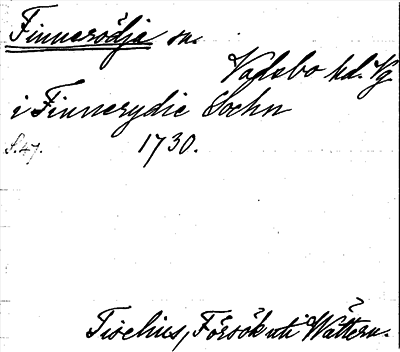 Finnerödja sn.
Vadsbo hd. Vg
i Finnerydie Sochn
S. 47. 1730.
Tiselius, Försök uti Wättern.